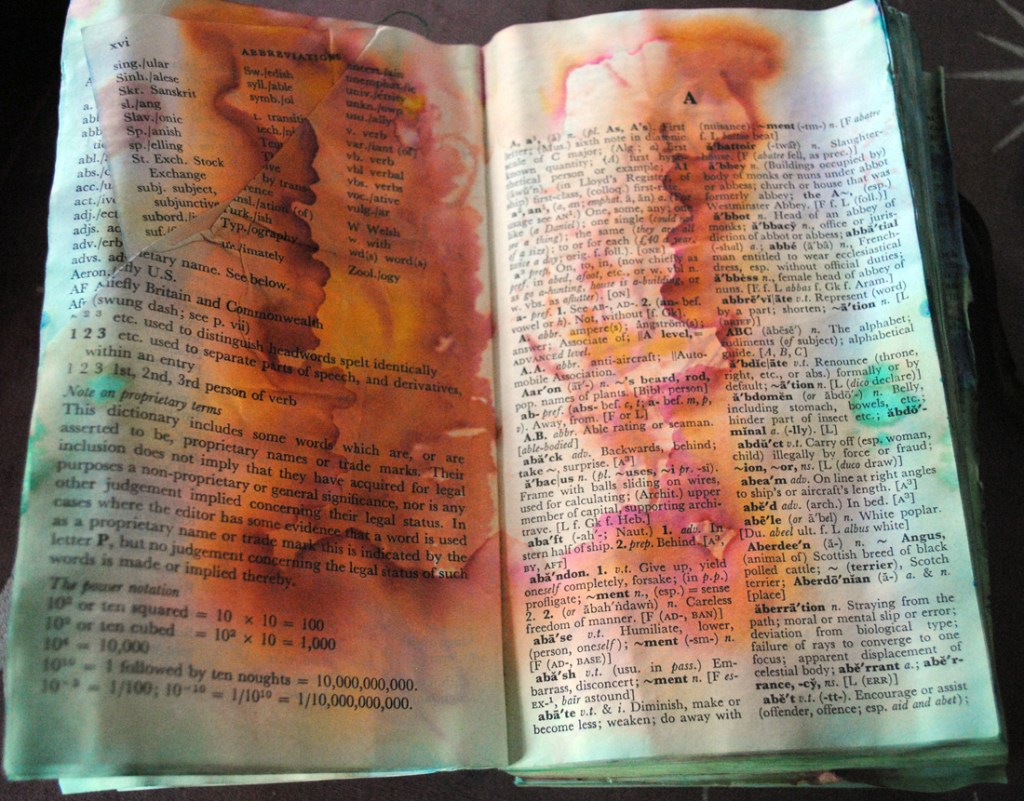 xvi
ABBREVIATIONS
sing./ular
Sinh./alese
Skr. Sanskrit
sl./ang
Slav./onic
Sp./anish
sp./elling
St. Exch. Stock
Exchange
subj. subject,
subjunctive
subord./
suf./
Sw./edish
syll./able
symb./ol
t. transiti
tech./n
by trans-
/ation (of)
Turk./ish
Typ./ography
ult./imately
uncert./ain
unemphat./ic
univ./ersity
unkn./own
usu./ally
v. verb
var./iant (of)
vb. verb
vbl verbal
vbs. verbs
voc./ative
vulg./ar
W Welsh
w. with
wd(s) word(s)
Zool./ogy
a.
ab
abb
abl./
abs./
acc./u
act./iv
adj./ect
adjs. ac
adv./erb
advs. ad
Aeron.
AF
Afr
etary name. See below.
fly U.S.
iefly Britain and Commonwealth
(swung dash; see p. vii)
1 2 3 etc. used to distinguish headwords spelt identically
1 2 3 etc. used to separate parts of speech, and derivatives,
within an entry
1 2 3 1st, 2nd, 3rd person of verb
Note on proprietary terms
This dictionary includes some words which are, or are
asserted to be, proprietary names or trade marks. Their
inclusion does not imply that they have acquired for legal
purposes a non-proprietary or general significance, nor is any
other judgement implied concerning their legal status. In
cases where the editor has some evidence that a word is used
as a proprietary name or trade mark this is indicated by the
letter P, but no judgement concerning the legal status of such
words is made or implied thereby.
The power notation
10² or ten squared = 10 × 10 = 100
10³ or ten cubed = 10² × 10 = 1,000
10⁴ = 10,000
10¹⁰ = 1 followed by ten noughts = 10,000,000,000.
10⁻² = 1/100; 10⁻¹⁰ = 1/10¹⁰ = 1/10,000,000,000.
A
A, a¹, (ā) n. (pl. As, A's). First
letter; (Mus.) sixth note in diatonic
scale of C major; (Alg.; a) first
known quantity; (A) first hypo-
thetical person or example; A1
(āwŭ'n), (in Lloyd's Register of
ship) first-class, (colloq.) first-rate.
a², an¹, (a, an; emphat. ā, ăn) a. (for
usage see AN¹.) One, some, any; one
like (a Daniel); one single (could
of a thing); the same (they are all
of a size); to or for each (£40 a year,
twice a day; orig. f. foll.). [ONE]
a³ pref. On, to, in, (now chiefly as
pref. in abed, afoot, etc., or w. vbl n.
as go a-hunting, house is a-building, or
w. vbs. as aflutter). [ON]
a- pref. 1. See AB-, AD-. 2. (an- bef.
vowel or h). Not, without [f. Gk].
A. abbr. ampere(s); ångström(s);
answer; Associate of; ‖A level, =
ADVANCED level.
A.A. abbr. anti-aircraft; ‖Auto-
mobile Association.
Aar'on (ār'-) n. ~'s beard, rod,
pop. names of plants. [Bibl. person]
ab- pref. (abs- bef. c, t; a- bef. m, p,
v). Away, from. [F or L]
A.B. abbr. Able rating or seaman.
[able-bodied]
abă'ck adv. Backwards, behind;
take ~, surprise. [A³]
ă'bac|us n. (pl. ~uses, ~i pr. -sī).
Frame with balls sliding on wires,
used for calculating; (Archit.) upper
member of capital, supporting archi-
trave. [L f. Gk f. Heb.]
aba'ft (-ah'-; Naut.) 1. adv. In
stern half of ship. 2. prep. Behind. [A³,
BY, AFT]
abă'ndon. 1. v.t. Give up, yield
oneself completely, forsake; (in p.p.)
profligate; ~ment n., (esp.) = sense
2. 2. (or ăbah'ṅdawṅ) n. Careless
freedom of manner. [F (AD-, BAN)]
abā'se v.t. Humiliate, lower,
(person, oneself); ~ment (-sm-) n.
[F (AD-, BASE)]
abă'sh v.t. (usu. in pass.) Em-
barrass, disconcert; ~ment n. [F es-
EX-¹, baïr astound]
abā'te v.t. & i. Diminish, make or
become less; weaken; do away with
(nuisance); ~ment (-tm-) n. [F abatre
f. L batto beat]
ă'battoir (-twār) n. Slaughter-
house. [F (abatre fell, as prec.)]
ă'bbey n. (Buildings occupied by)
body of monks or nuns under abbot
or abbess; church or house that was
formerly abbey; the A~, (esp.)
Westminster Abbey. [F f. L (foll.)]
ă'bbot n. Head of an abbey of
monks; ă'bbacy̆ n. office or juris-
diction of abbot or abbess; abbā'tial
(-shul) a.; abbé (ă'bā) n., French-
man entitled to wear ecclesiastical
dress, esp. without official duties;
ă'bbèss n., female head of abbey of
nuns. [E f. L abbas f. Gk f. Aram.]
abbrē'vi|āte v.t. Represent (word)
by a part; shorten; ~ā'tion n. [L
(BRIEF)]
ABC (ābēsē') n. The alphabet;
rudiments (of subject); alphabetical
guide. [A, B, C]
ă'bdic|āte v.t. Renounce (throne,
right, etc., or abs.) formally or by
default; ~ā'tion n. [L (dico declare)]
ă'bdomĕn (or ăbdō'-) n. Belly,
including stomach, bowels, etc.;
hinder part of insect etc.; ăbdŏ'-
mĭnal a. (-lly). [L]
abdŭ'ct v.t. Carry off (esp. woman,
child) illegally by force or fraud;
~ion, ~or, ns. [L (duco draw)]
abea'm adv. On line at right angles
to ship's or aircraft's length. [A³]
abĕ'd adv. (arch.) In bed. [A³]
abē'le (or ā'bel) n. White poplar.
[Du. abeel ult. f. L albus white]
Aberdee'n (ă-) n. ~ Angus,
(animal of) Scottish breed of black
polled cattle; ~ (terrier), Scotch
terrier; Aberdō'nian (ă-) a. & n.
[place]
ăberrā'tion n. Straying from the
path; moral or mental slip or error;
deviation from biological type;
failure of rays to converge to one
focus; apparent displacement of
celestial body; abĕ'rrant a.; abĕ'r-
rance, -cy̆, ns. [L (ERR)]
abĕ't v.t. (-tt-). Encourage or assist
(offender, offence; esp. aid and abet);